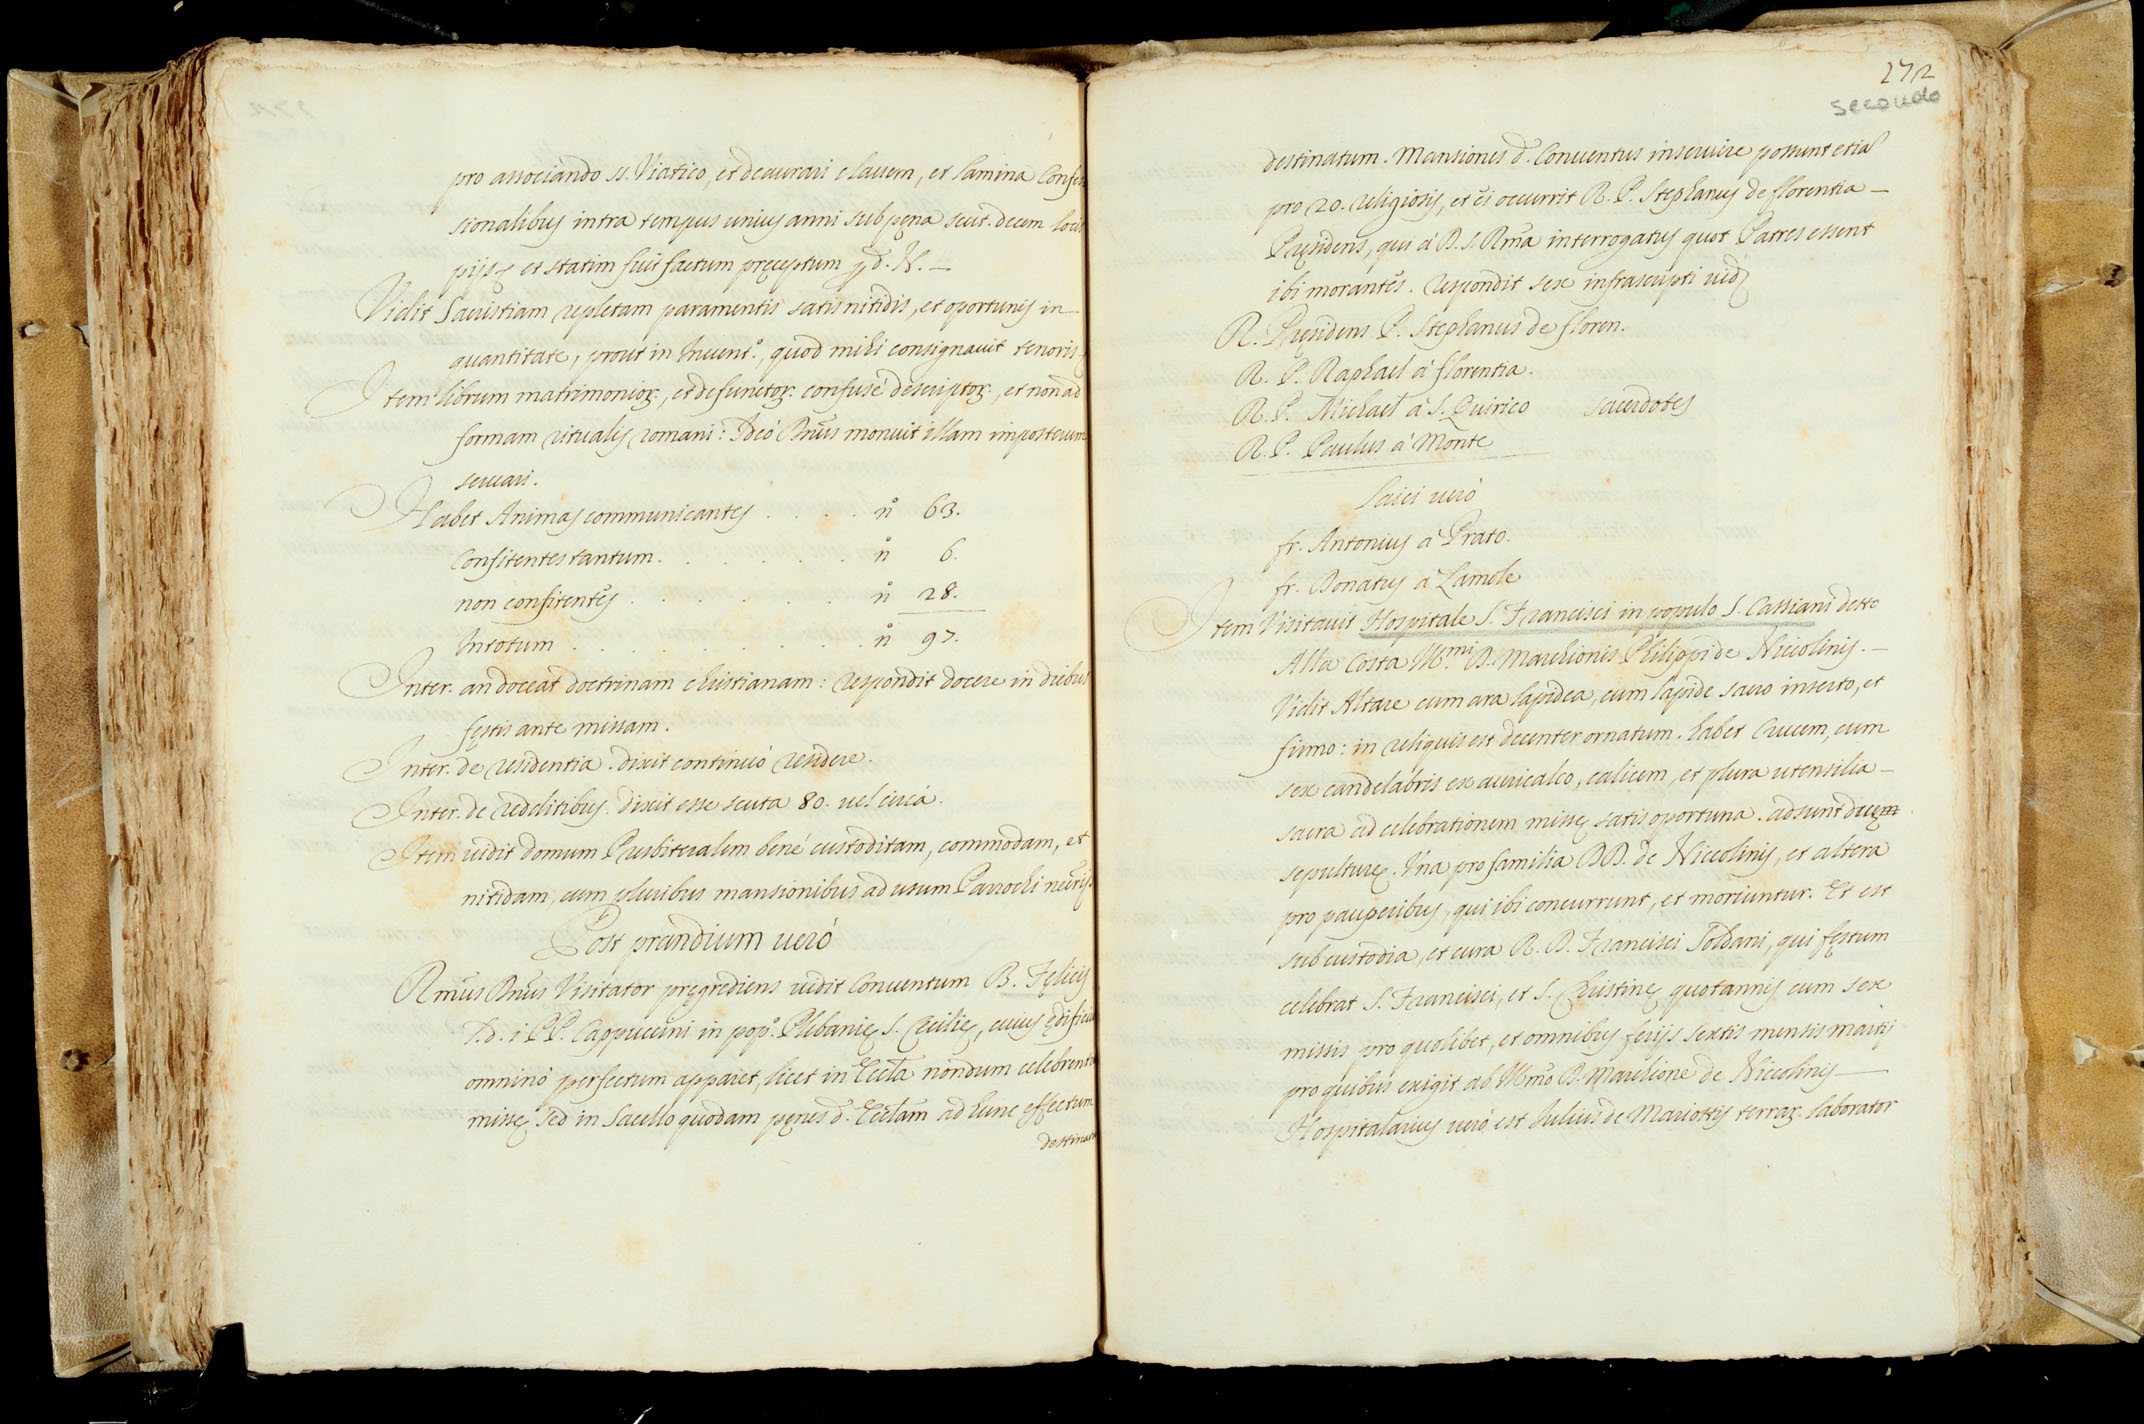 pro associando ss. Viatico, et deaurari clauem, et lamina Confes
sionalibus intra tempus unius anni sub pęna scut. decem locis
pijs et statim fuit factum pręceptum d. N. —
Vidit Sacristiam repletam paramentis satis nitidis, et oportunis in
quantitate, prout in Inuent.º, quod mihi consignauit tenoris
Item librum matrimonioꝝ, et defunctoꝝ confusé descriptoꝝ, et non ad
formam ritualis romani: Ideó Dn̄us monuit illam imposterum
seruari.
Habet Animas communicantes . . . . nº 63.
Confitentes tantum . . . . . . . nº 6.
non confitentes . . . . . . . . nº 28.
In totum . . . . . . . . . . nº 97.
Inter. an doceat doctrinam christianam: respondit docere in diebus
fęstis ante missam.
Inter. de residentia. dixit continuó residere.
Inter. de redditibus. dixit esse scuta 80. uel circá.
Item uidit domum Presbiteralem bené custoditam, commodam, et
nitidam, cum pluribus mansionibus ad usum Parrochi
Post prandium ueró
Rm̄us Dn̄us Visitator pręgrediens uidit Conuentum B. Fęlicis
PP. Cappuccini in popº. Plebanię S. Cecilię, cuius ędificiu
omninó perfectum apparet, licet in Eccl̄a nondum celebrent
missę sed in Sacello quodam pęnes d. Eccl̄am ad hunc effectum
destinat
172
secondo
destinatum. Mansiones d. Conuentus inseruire possunt etia
pro 20. religiosis, et ei occurrit R. P. Stephanus de florentia —
Pręsidens, qui á D. S. Rm̄a interrogatus quot Patres essent
ibi morantes. respondit sex infrascripti uidꝫ
R. Pręsidens P. Stephanus de floren.
R. P. Raphael á florentia.
R. P. Michael á S. Quirico sacerdotes
R. P. Paulus á Monte
Laici ueró
fr. Antonius á Prato.
fr. Donatus á Lamole
Item Visitauit Hospitale S. Francisci in populo S. Cassiani detto
Alla Costa Ill.mi D. Marchionis Philippi de Niccolinis. —
Vidit Altare cum ara lapidea, cum lapide sacro inserto, et
firmo: in reliquis est decenter ornatum. habet Crucem, cum
sex candelabris ex auricalco, calicem, et plura utensilia —
sacra ad celebrationem missę satis oportuna. adsunt
sepulturę. Vna pro familia DD. de Niccolinis, et altera
pro pauperibus, qui ibi concurrunt, et moriuntur. Et est
sub custodia, et cura R. D. Francisci Soldani, qui fęstum
celebrat S. Francisci, et S. Christinę quotannis cum sex
missis pro quolibet, et omnibus ferijs sextis mensis martij
pro quibus exigit ab Ill̄mo D. Marchione de Niccolinis —
Hospitalarius ueró est Iulius de Mariottis terraꝝ laborator